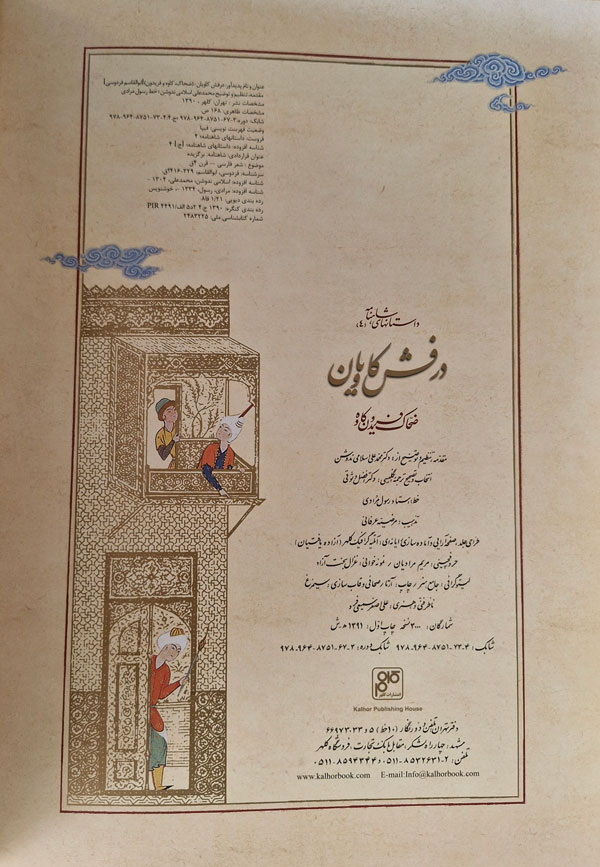 عنوان و نام پدیدآور: درفش کاویان: (ضحاک، کاوه و فریدون)/ابوالقاسم فردوسی؛
مقدمه، تنظیم و توضیح محمدعلی اسلامی ندوشن؛ خط رسول مرادی
مشخصات نشر: تهران: کلهر، ۱۳۹۰
مشخصات ظاهری: ۱۶۸ ص
شابک: دوره:۳-۶۷-۸۷۵۱-۹۶۴-۹۷۸ ج۴:۴-۷۳-۸۷۵۱-۹۶۴-۹۷۸
وضعیت فهرست نویسی: فیپا
فروست: داستانهای شاهنامه؛ ۴
شناسه افزوده: داستانهای شاهنامه: [ج] ۴
عنوان قراردادی: شاهنامه. برگزیده
موضوع: شعر فارسی -- قرن ۴ق
سرشناسه: فردوسی، ابوالقاسم، ۳۲۹-۴۱۶ق
شناسه افزوده: اسلامی ندوشن، محمدعلی، ۱۳۰۴ -
شناسه افزوده: مرادی، رسول، ۱۳۳۴ -، خوشنویس
رده بندی دیویی: ۱/۲۱ فا۸
رده بندی کنگره: ۱۳۹۰ ج.۴ ۲د۵ الف/PIR ۴۴۹۱
شماره کتابشناسی ملی: ۲۴۸۳۲۲۵
داستانهای شاهنامه (۴)
درفش کاویان
ضحاک فریدون کاوه
مقدمه تنظیم و توضیح از: دکتر محمدعلی اسلامی ندوشن
انتخاب تصحیح ترجمه انگلیسی: دکتر افضل وثوقی
خط: استاد رسول مرادی
تذهیب: مرضیه عرفانی
طراحی جلد، صفحه آرایی و آماده سازی رایانه ای: آتلیه گرافیک کلهر (آزاده یافتیان)
حروفچینی: مریم مرادیان / نمونه خوانی: غزال بخت آزاد
لیتوگرافی: جامع هنر / چاپ: آرتا / صحافی و قاب سازی: سیمرغ
ناظر فنی و هنری: علی اصغر
شمارگان: ۳۰۰۰ نسخه چاپ اول: ۱۳۹۱ ه.ش
شابک: ۴-۷۳-۸۷۵۱-۹۶۴-۹۷۸ شابک دوره: ۳-۶۷-۸۷۵۱-۹۶۴-۹۷۸
انتشارات کلهر
Kalhor Publishing House
دفتر تهران تلفن و دورنگار (۱۰ خط) ۵ و ۳۳-۶۶۹۷۳
مشهد: چهارراه لشکر، مقابل بانک تجارت، فروشگاه کلهر
تلفن: ۲-۸۵۳۲۶۳۱-۰۵۱۱ ۸۵۹۴۳۴۴-۰۵۱۱
www.kalhorbook.com E-mail:Info@kalhorbook.com